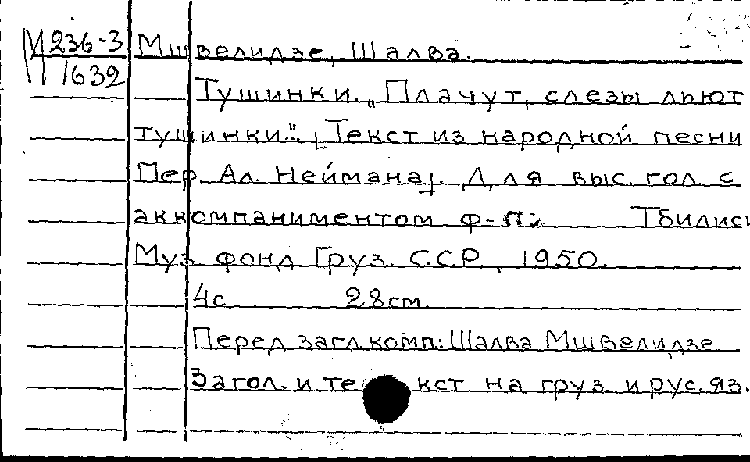 М 236-3 Мшвелидзе, Шалва.
1632
Тушинки. „Плачут, слезы льют
тушинки." [Текст из народной песни
Пер. Ал. Неймана]. Для выс. гол. с
аккомпаниментом ф-п. Тбилиси
Муз. фонд Груз. С.С.Р., 1950.
4с. 28см.
Перед загл. комп.: Шалва Мшвелидзе
Загол. и текст на груз. и рус. яз.